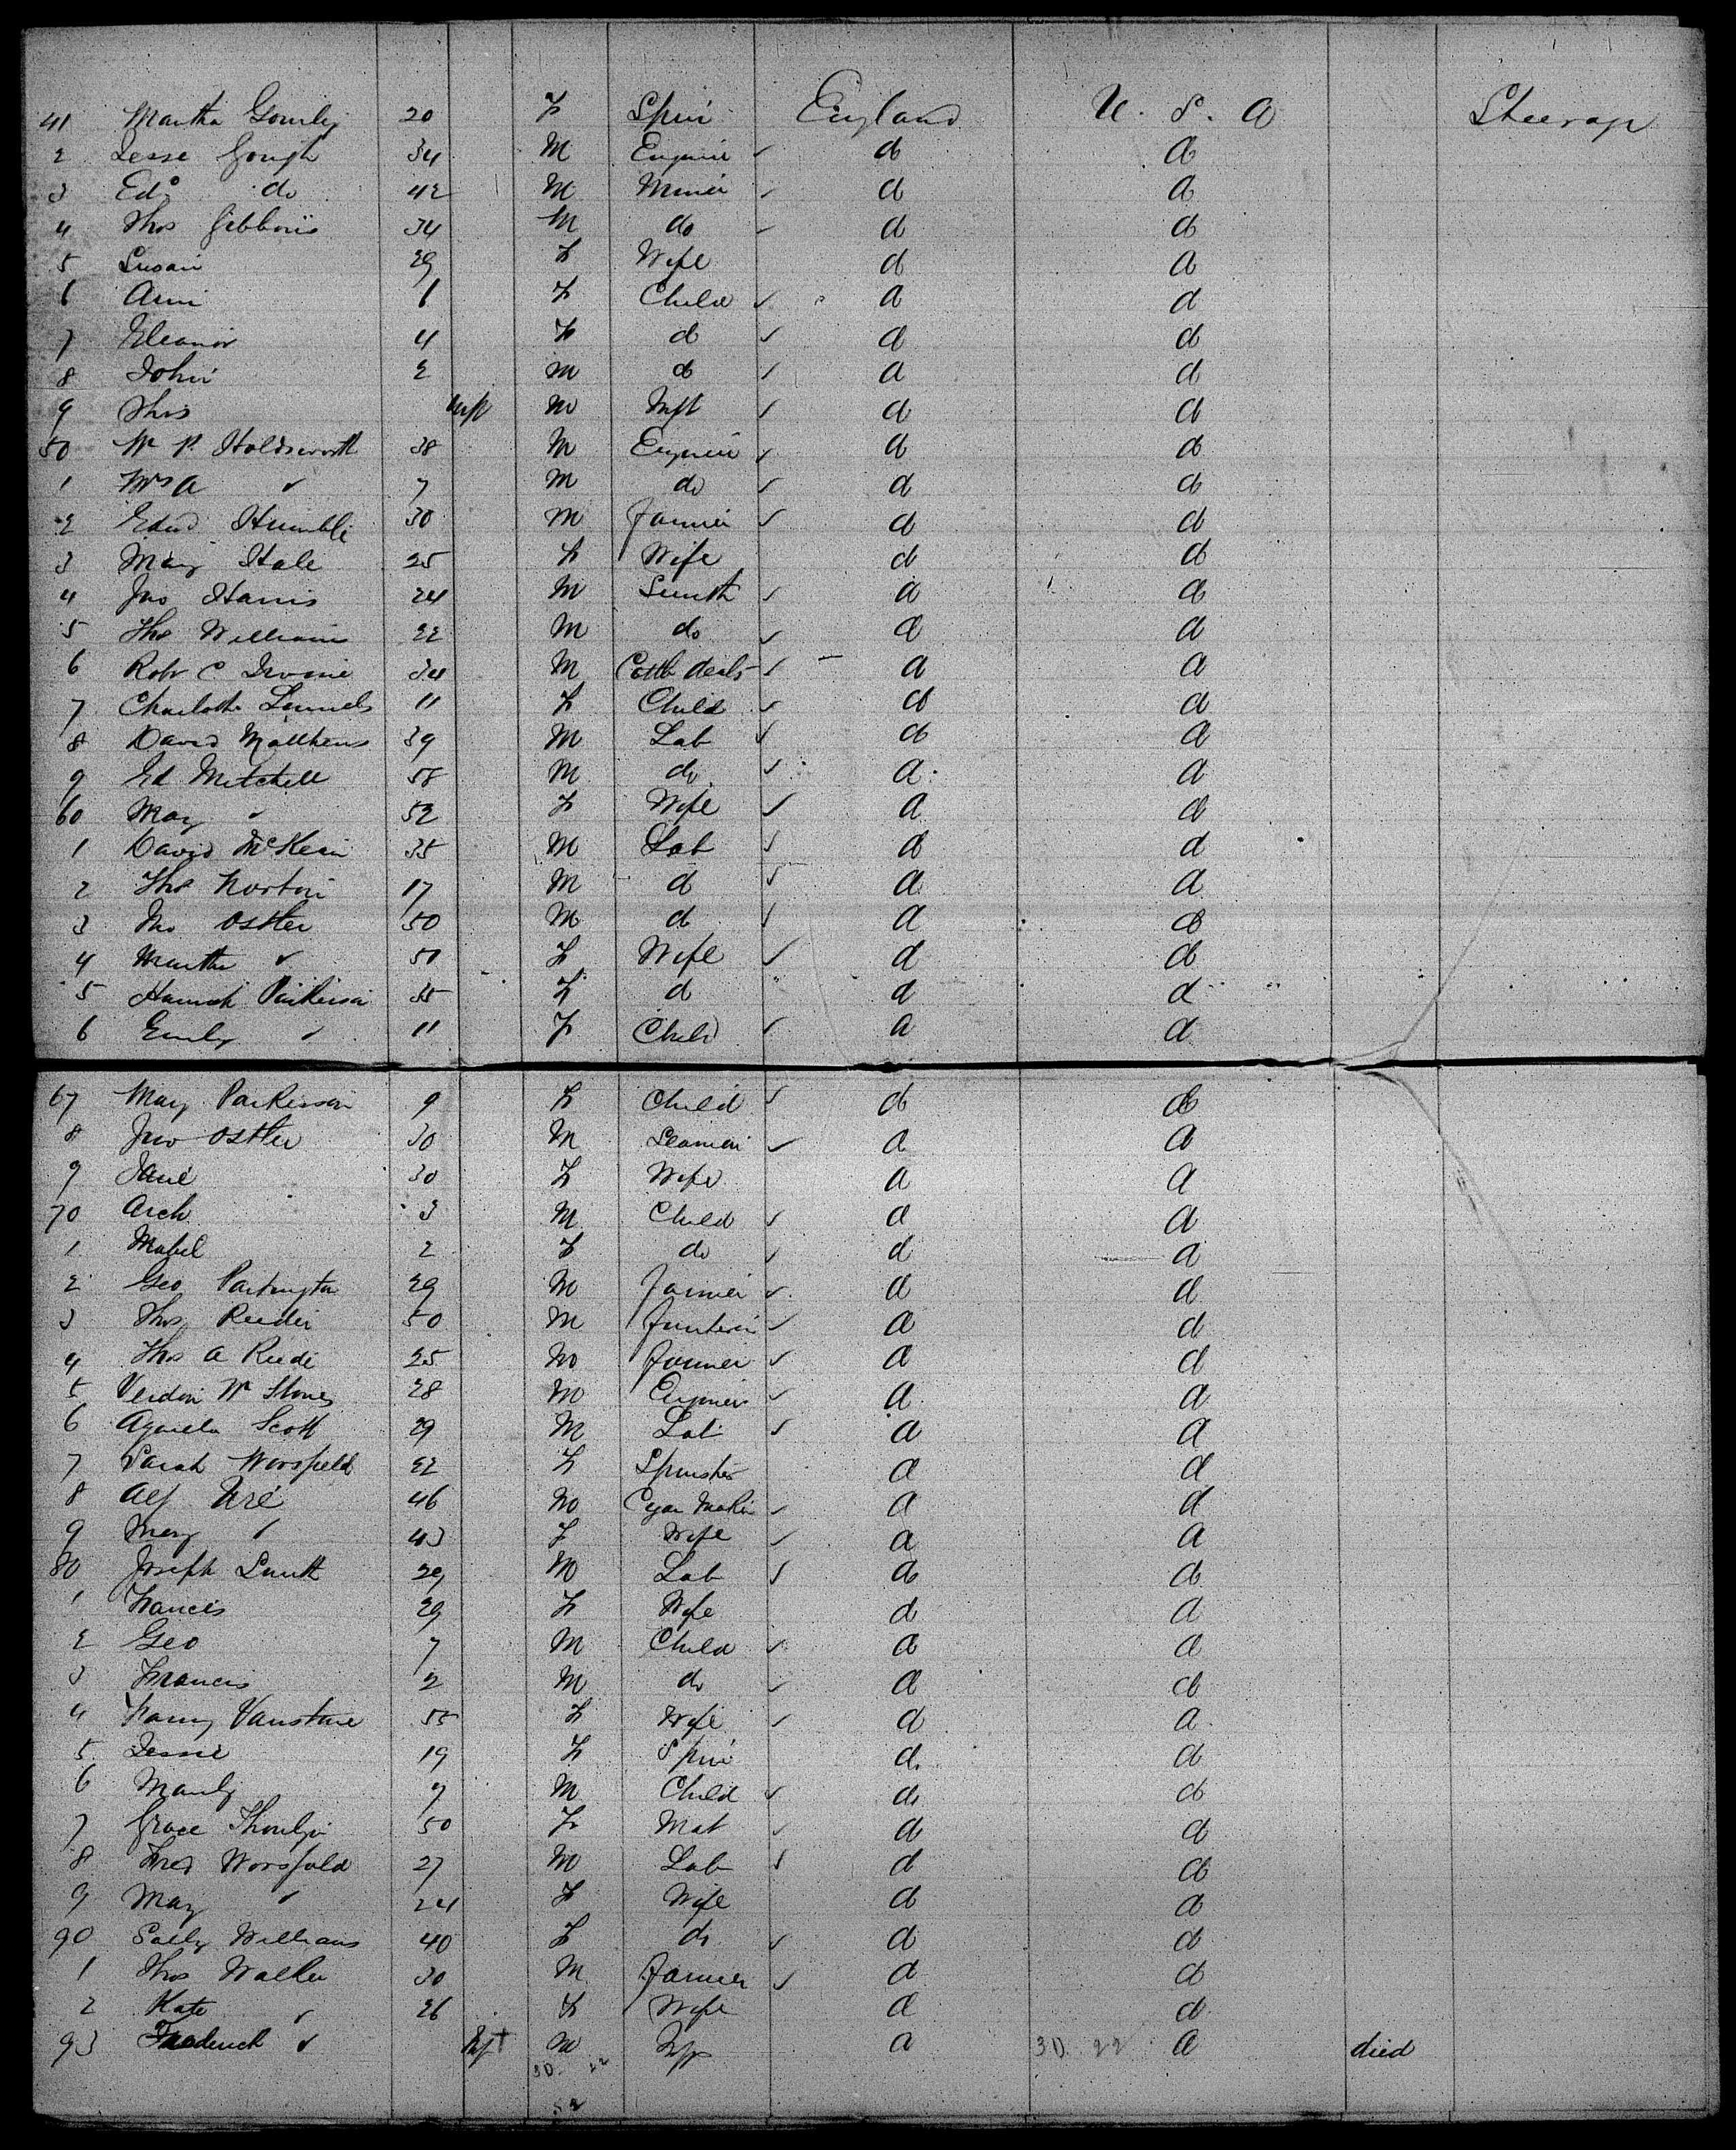 41 Martha Gourley 20 F Spin England U. S. A Steerage
2 Jesse Gough 34 M Engineer do do
3 Edd do 42 M Miner do do
4 Thos Gibbons 34 M do do do
5 Susan 29 F Wife do do
6 Ann 6 F Child do do
7 Eleanor 4 F do do do
8 John 2 M do do do
9 Thos Inft M Inft do do
50 W P. Holdsworth 38 M Engineer do do
1 Wm A " 7 M do do do
2 Edwd Humble 30 M Farmer do do
3 Mary Hale 25 F Wife do do
4 Jno Harris 24 M Smith do do
5 Thos Williams 22 M do do do
6 Robt C Irvine 34 M Cattle dealr do do
7 Charlotte 11 F Child do do
8 David Matthews 39 M Lab do do
9 Ed Mitchell 58 M do do do
60 Mary " 52 F Wife do do
1 David McKean 35 M Lab do do
2 Thos Norton 17 M do do do
3 Jno Ostler 50 M do do do
4 Martha " 50 F Wife do do
5 Hannah Parkinson 35 F do do do
6 Emily " 11 F Child do do
67 Mary Parkinson 9 F Child do do
8 Jno Ostler 30 M Seaman do do
9 Jane 30 F Wife do do
70 Arch 3 M Child do do
1 Mabel 2 F do do do
2 Geo Partington 29 M Farmer do do
3 Thos Reeder 50 M do do
4 Thos A Reede 25 M Farmer do do
5 W Stones 28 M Engineer do do
6 Aquila Scott 29 M Lab do do
7 Sarah Worsfield 22 F Spinster do do
8 Alf Ure 46 M Cigar Maker do do
9 Mary " 43 F Wife do do
80 Joseph Smith 29 M Lab do do
1 Francis 29 F Wife do do
2 Geo 7 M Child do do
3 Francis 2 M do do do
4 Fanny Vanstone 55 F Wife do do
5 Jessie 19 F Spin do do
6 Manly 9 M Child do do
7 Grace 50 F Mat do do
8 Fred Worsfold 27 M Lab do do
9 Mary " 24 F Wife do do
90 Sally Williams 40 F do do do
1 Thos Walker 30 M Farmer do do
2 Kate " 26 F Wife do do
93 Frederick " Inft M Inf do 30. 22 do died
30. 22
52